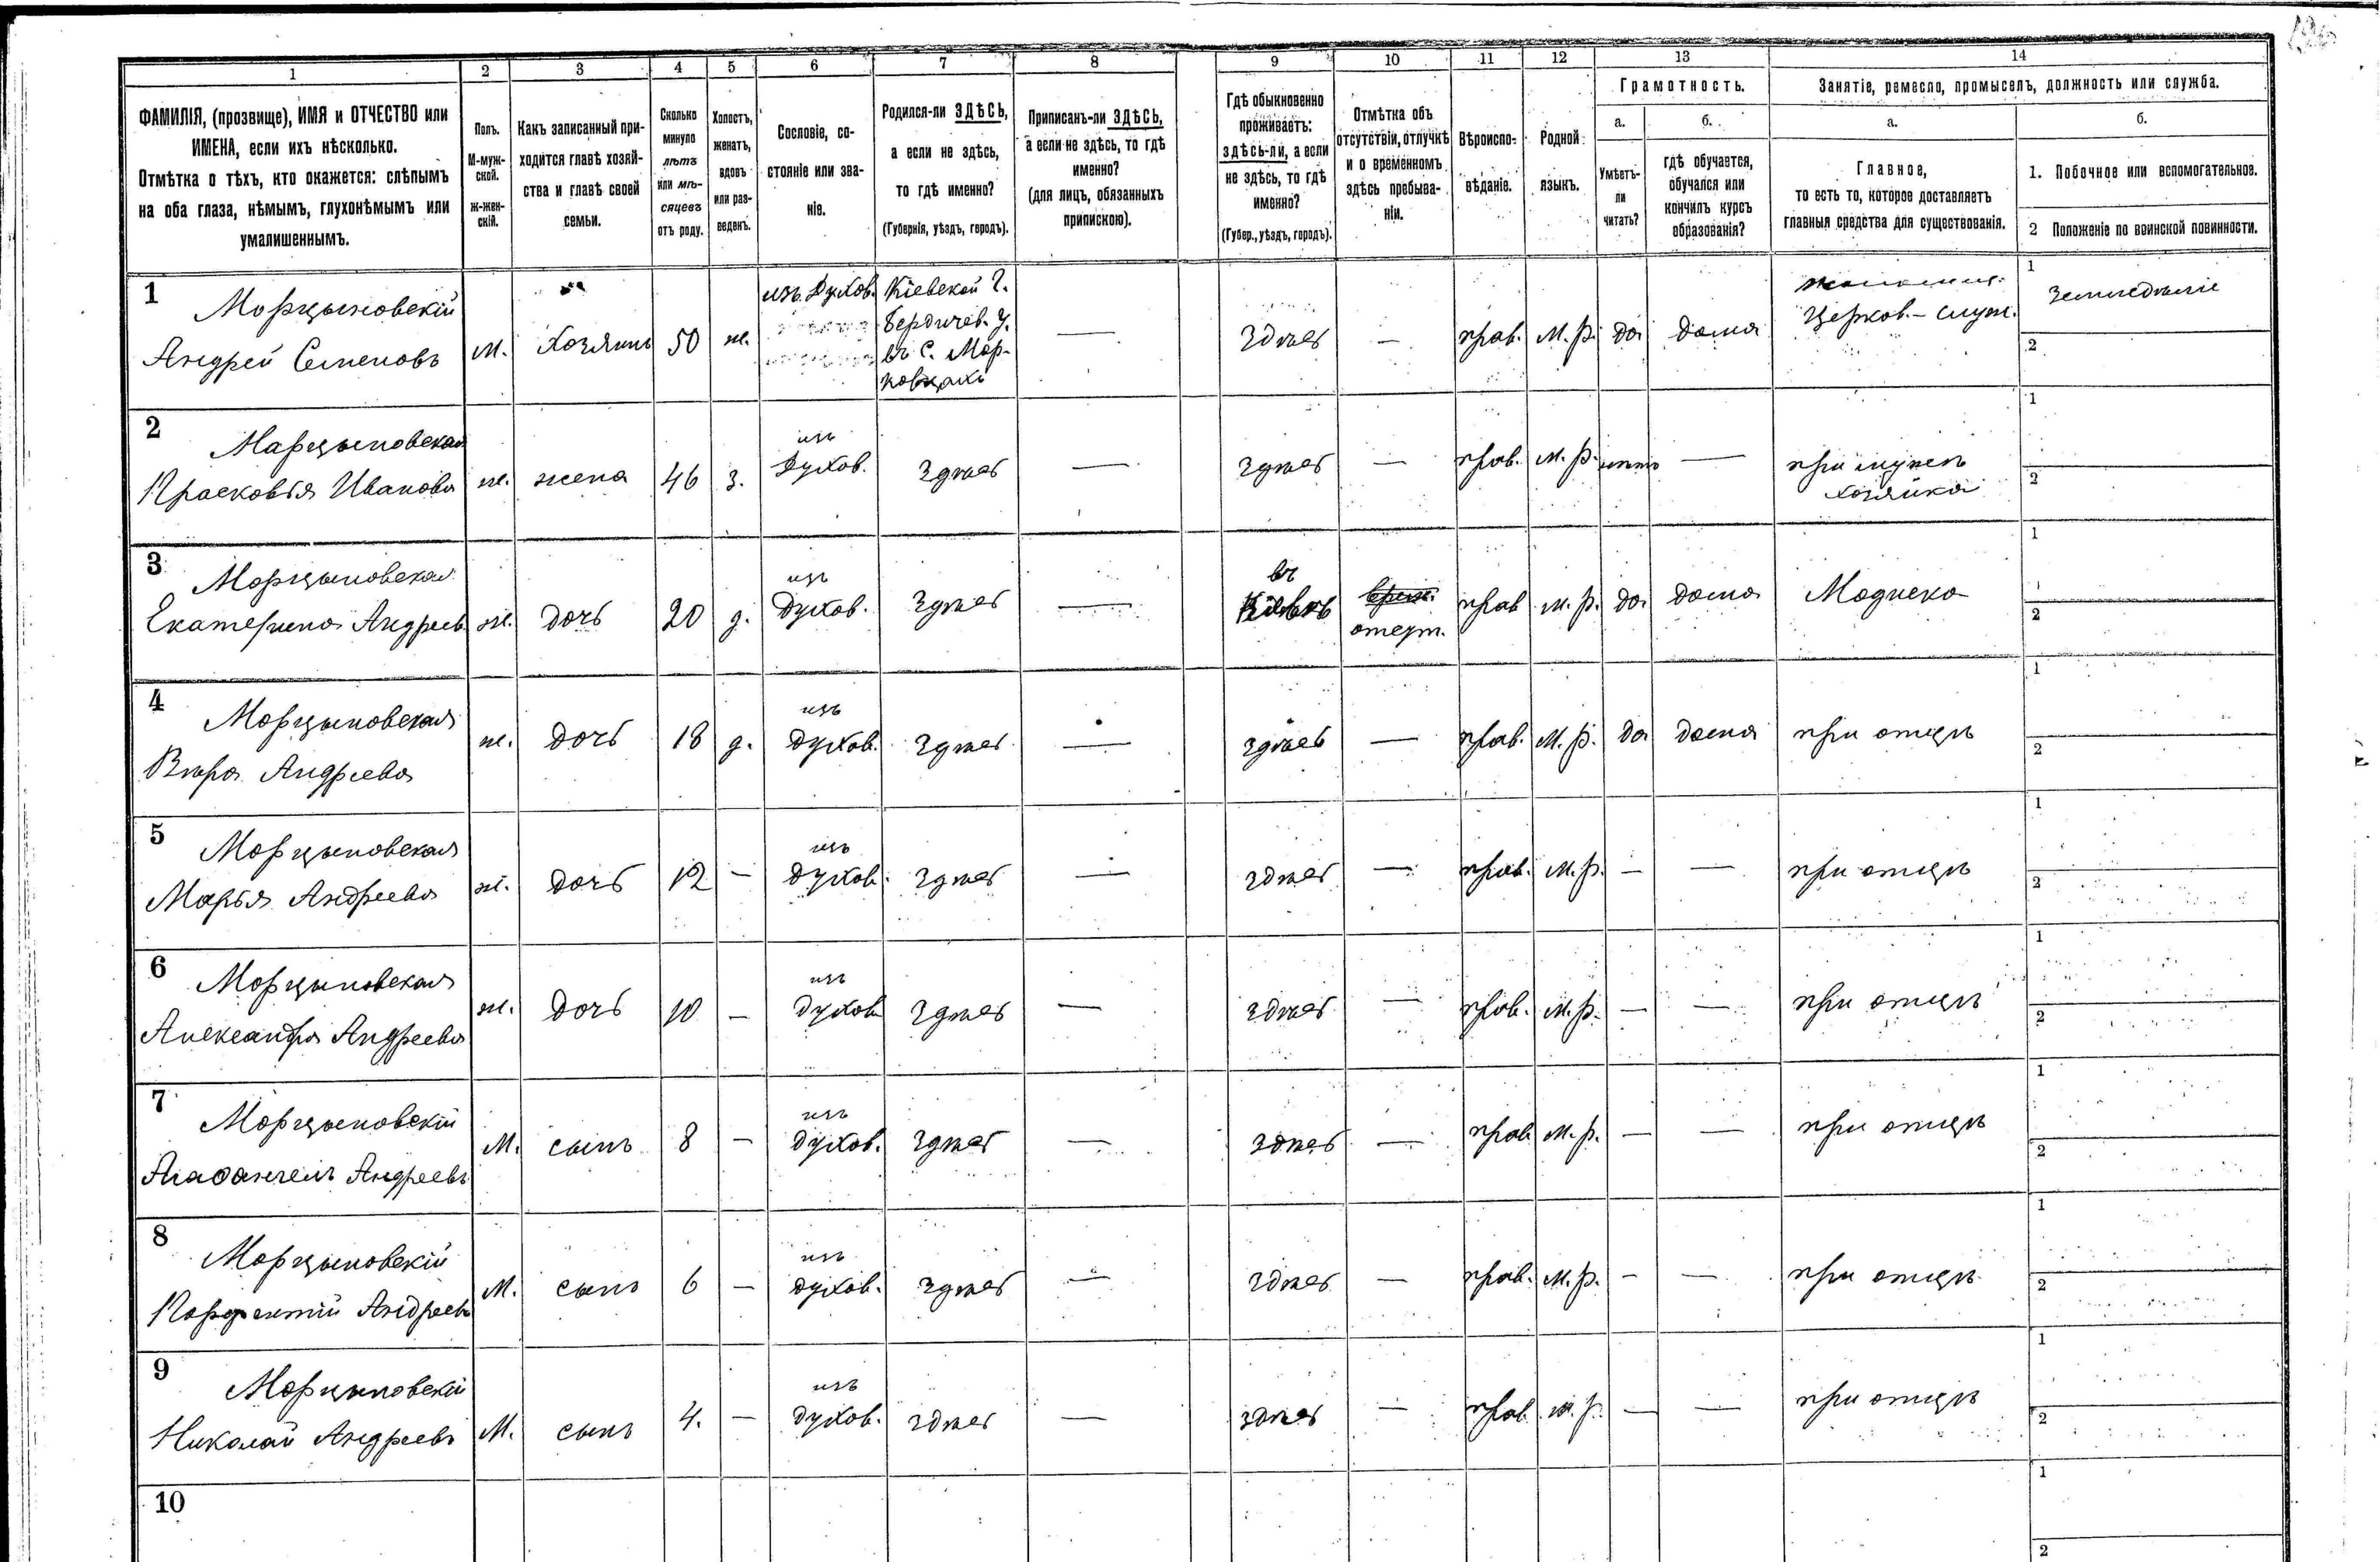 1 2 3 4 5 6 7 8 9 10 11 12 13 14
ФАМИЛІЯ, (прозвище), ИМЯ и ОТЧЕСТВО или
ИМЕНА, если ихъ нѣсколько.
Отмѣтка о тѣхъ, кто окажется: слѣпымъ
на оба глаза, нѣмымъ, глухонѣмымъ или
умалишеннымъ.
Полъ.
М-муж-
ской.
ж-жен-
скій.
Какъ записанный при-
ходится главѣ хозяй-
ства и главѣ своей
семьи.
Сколько
минуло
лѣтъ
или мѣ-
сяцевъ
отъ роду.
Холостъ,
женатъ,
вдовъ
или раз-
веденъ.
Сословіе, со-
стояніе или зва-
ніе.
Родился-ли ЗДѢСЬ,
а если не здѣсь,
то гдѣ именно?
(Губернія, уѣздъ, городъ).
Приписанъ-ли ЗДѢСЬ,
а если не здѣсь, то гдѣ
именно?
(для лицъ, обязанныхъ
припискою).
Гдѣ обыкновенно
проживаетъ:
здѣсь-ли, а если
не здѣсь, то гдѣ
именно?
(Губер., уѣздъ, городъ).
Отмѣтка объ
отсутствіи, отлучкѣ
и о временномъ
здѣсь пребыва-
ніи.
Вѣроиспо-
вѣданіе.
Родной
языкъ.
Грамотность.
а.
Умѣетъ-
ли
читать?
б.
гдѣ обучается,
обучался или
кончилъ курсъ
образованія?
Занятіе, ремесло, промыселъ, должность или служба.
а.
Главное,
то есть то, которое доставляетъ
главныя средства для существованія.
б.
1. Побочное или вспомогательное.
2 Положеніе по воинской повинности.
1
Марцыновскій
Андрей Семеновъ
м.
Хозяинъ
50
ж.
изъ Духов.
Кіевской Г.
Бердичев. У.
въ С. Мар-
ковцахъ
—
здѣсь
—
прав.
М. р.
да
дома
Церков.- служ.
1
Земледѣліе
2
2
Марцыновская
Прасковья Иванова
ж.
жена
46
з.
изъ
Духов.
здѣсь
—
здѣсь
—
прав.
М. р.
нѣтъ
—
при мужѣ
хозяйка
1
2
3
Марцыновская
Екатерина Андреев.
ж.
дочь
20
д.
изъ
духов.
здѣсь
—
въ
Кіевѣ
отсут.
прав
м. р.
да
дома
Модиска
1
2
4
Марцыновская
Вѣра Андреева
ж.
дочь
18
д.
изъ
духов.
здѣсь
—
здѣсь
—
прав.
М. р.
да
дома
при отцѣ
1
2
5
Марцыновская
Марья Андреева
ж.
дочь
12
—
изъ
духов.
здѣсь
—
здѣсь
—
прав.
М. р.
—
—
при отцѣ
1
2
6
Марцыновская
Александра Андреева
ж.
дочь
10
—
изъ
духов.
здѣсь
—
здѣсь
—
прав.
М. р.
—
—
при отцѣ
1
2
7
Марцыновскій
Агафангелъ Андреевъ
М.
сынъ
8
—
изъ
духов.
здѣсь
—
здѣсь
—
прав
М. р.
—
—
при отцѣ
1
2
8
Марцыновскій
Андреевъ
М.
сынъ
6
—
изъ
духов.
здѣсь
—
здѣсь
—
прав.
М. р.
—
—
при отцѣ
1
2
9
Марцыновскій
Николай Андреевъ
М.
сынъ
4.
—
изъ
духов.
здѣсь
—
здѣсь
—
прав
м. р.
—
—
при отцѣ
1
2
10
1
2